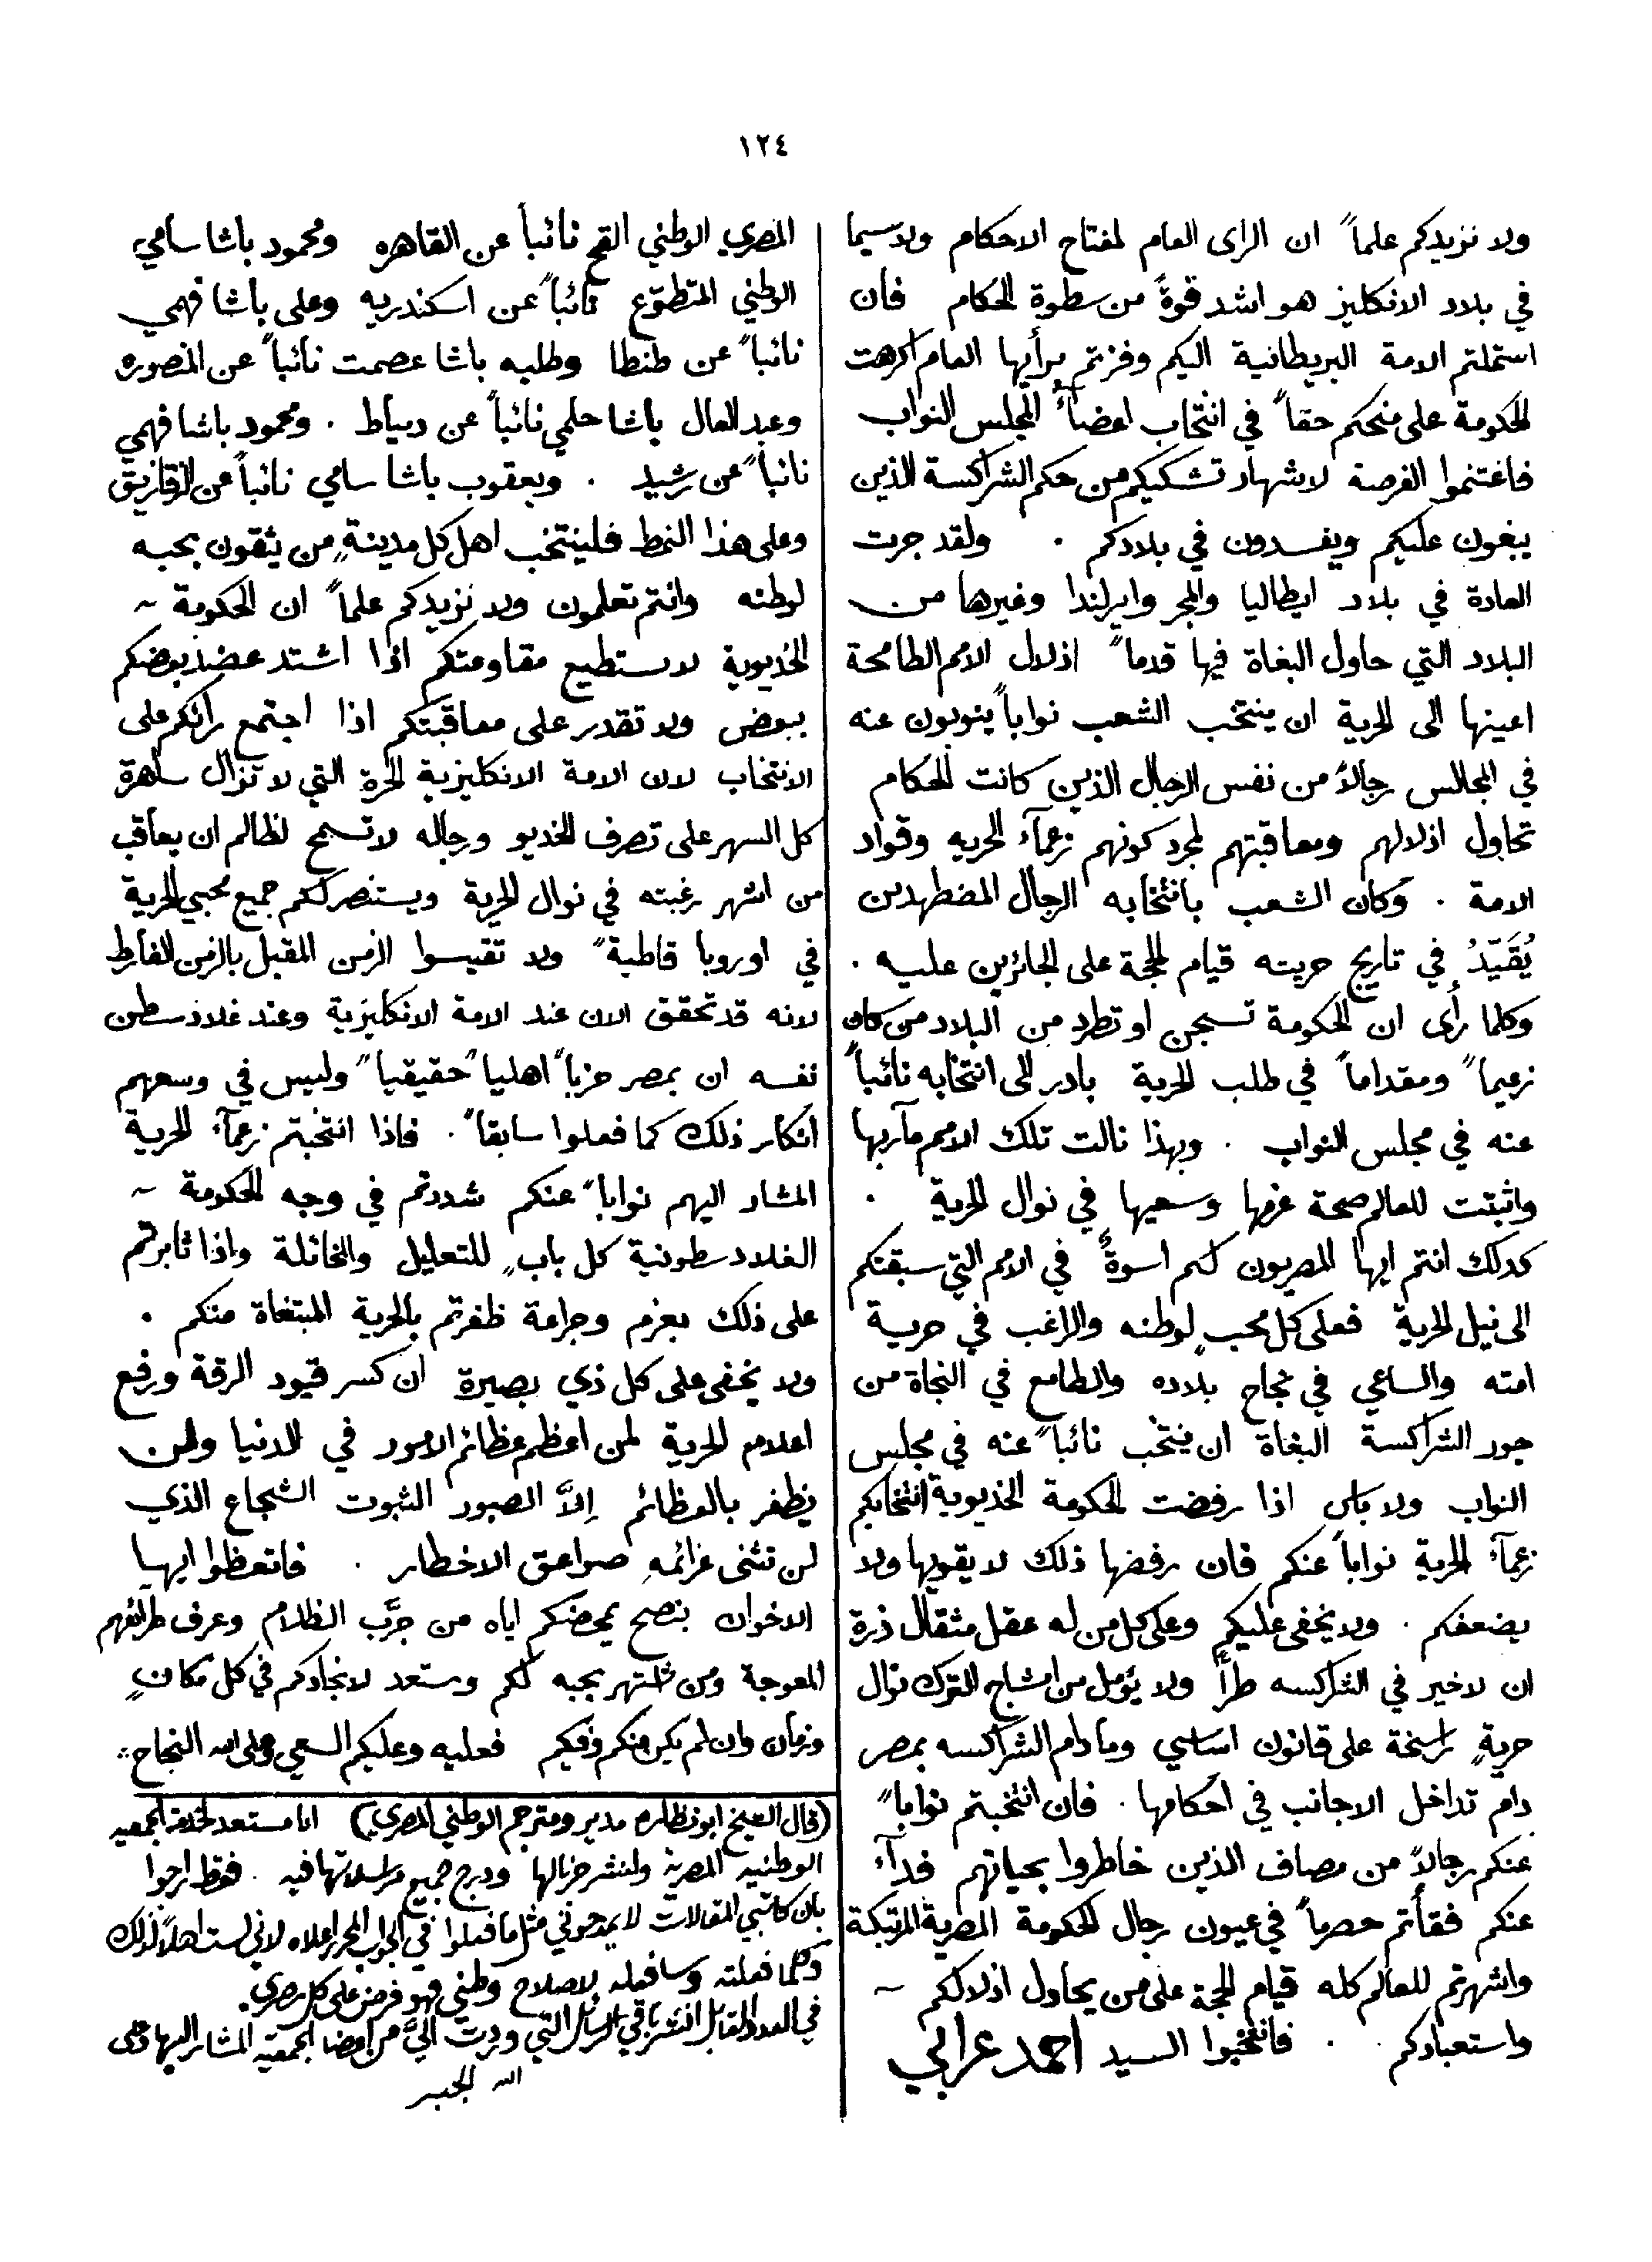 ١٢٤
ولا نزيدكم علماً ان الراى العام لمفتاح الاحكام ولاسيما
في بلاد الانكليز هو اشد قوةً من سطوة الحكام فان
استملتم الامة البريطانية اليكم وفزتم برأيها العام اكرهت
الحكومة على منحكم حقاً في انتخاب اعضاء المجلس النواب
فاغتنموا الفرصة لاشهار تشكيكم من حكم الشراكسة الذين
يبغون عليكم ويفسدون في بلادكم . ولقد جرت
العادة في بلاد ايطاليا والمجر وايرلندا وغيرها من
البلاد التي حاول البغاة فيها قدماً اذلال الامم الطامحة
اعينها الى الحرية ان ينتخب الشعب نواباً ينوبون عنه
في المجالس رجالاً من نفس الرجال الذين كانت الحكام
تحاول اذلالهم ومعاقبتهم لمجرد كونهم زعمآء الحريه وقواد
الامة . وكان الشعب بانتخابه الرجال المضطهدين
يُقَيّدُ في تاريخ حريته قيام الحجة على الجائرين عليه .
وكلما رأى ان الحكومة تسجن او تطرد من البلاد من كان
زعيماً ومقداماً في طلب الحرية بادر الى انتخابه نائباً
عنه في مجلس النواب . وبهذا نالت تلك الامم مآربها
واثبتت للعالم صحة عزمها وسعيها في نوال الحرية .
كدلك انتم ايها المصريون لكم اسوةٌ في الامم التي سبقتكم
الى نيل الحرية فعلى كل محبٍ لوطنه والراغب في حرية
امته والساعي في نجاح بلاده والطامع في النجاة من
جور الشراكسة البغاة ان ينتخب نائباً عنه في مجلس
النواب ولا باس اذا رفضت الحكومة الخديوية انتخابكم
زعمآء الحرية نواباً عنكم فان رفضها ذلك لا يقويها ولا
يضعفكم . ولا يخفى عليكم وعلى كل من له عقل مثقال ذرة
ان لا خير في الشراكسه طراً ولا يؤمل من امشاج الترك نوال
حريةٍ راسخة على قانون اساسي وما دام الشراكسه بمصر
دام تداخل الاجانب في احكامها . فان انتخبتم نواباً
عنكم رجالاً من مصاف الذين خاطروا بحياتهم فدآء
عنكم فقأتم حصرماً في عيون رجال الحكومة المصرية المرتبكة
واشهرتم للعالم كله قيام الحجة على من يحاول اذلالكم ~
واستعبادكم . . فانتخبوا السيد احمد عرابي
المصري الوطني القح نائباً عن القاهره ومحمود باشا سامي
الوطني المتطوّع نائباً عن اسكندريه وعلى باشا فهمي
نائباً عن طنطا وطلبه باشا عصمت نائباً عن المنصوره
وعبد العال باشا حلمي نائباً عن دمياط . ومحمود باشا فهمي
نائباً عن رشيد . ويعقوب باشا سامي نائباً عن الزقازيق
وعلى هذا النمط فلينتخب اهل كل مدينةٍ من يثقون بحبه
لوطنه وانتم تعلمون ولا نزيدكم علماً ان الحكومة ~
الخديوية لا تستطيع مقاومتكم اذا اشتد عضد بعضكم
ببعض ولا تقدر على معاقبتكم اذا اجتمع رائكم على
الانتخاب لان الامة الانكليزية الحرة التي لا تزال ساهرة
كل السهر على تصرف الخديو ورجاله لا تسمح لظالم ان يعاقب
من اشهر رغبته في نوال الحرية ويستنصر لكم جميع محبي الحرية
في اوروبا قاطبةً ولا تقيسوا الزمن المقبل بالزمن الفارط
لانه قد تحقق الان عند الامة الانكليزية وعند غلادسطن
نفسه ان بمصر حزباً اهلياً حقيقياً وليس في وسعهم
انكار ذلك كما فعلوا سابقاً . فاذا انتخبتم زعمآء الحرية
المشار اليهم نواباً عنكم شددتم في وجه الحكومة ~
الغلادسطونية كل بابٍ للتعليل والمخاتلة واذا ثابرتم
على ذلك بعزم وجراءة ظفرتم بالحرية المبتغاة منكم .
ولا يخفى على كل ذي بصيرة ان كسر قيود الرقة ورفع
اعلام الحرية لمن اعظم عظائم الامور في الدنيا ولن
يظفر بالعظائم إلاَّ الصبور الثبوت الشجاع الذي
لن تثنى عزائمه صواعق الاخطار . فاتعظوا ايها
الاخوان بنصح يمحضكم اياه من جرَّب الظلام وعرف طرائقهم
المعوجة ومن اشتهر بحبه لكم ومستعد لانجادكم في كل مكانٍ
وزمان وان لم يكن منكم وفيكم فعليه وعليكم السعي وعلى الله النجاح ..
(قال الشيخ ابو نظاره مدير ومترجم الوطني المصري) انا مستعد لخدمة الجمعيه
الوطنيه المصرية ولنشر جرنالها ودرج جميع مراسلاتها فيه . فقط ارجوا
بان كاتبي المقالات لا يمدحوني مثل ما فعلوا في الجواب المحرر اعلاه لاني لست اهلاً لذلك
وكلما فعلته وسافعله لاصلاح وطني فهو فرض على كل مصري .
في العدد المقابل انشر باقي الرسائل التي وردت اليَّ من اعضا الجمعيه المشار اليها وعلى
الله الجبر